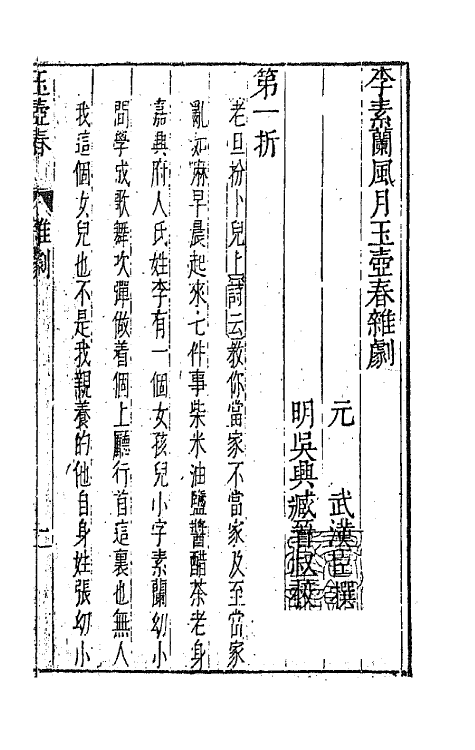 李素蘭風月玉壺春雜劇
元　武漢臣撰
明吳興臧晉叔校
第一折
老旦扮卜兒上詩云教你當家不當家及至當家
亂如麻早晨起來七件事柴米油鹽醬醋茶老身
嘉興府人氏姓李有一個女孩兒小字素蘭幼小
間學成歌舞吹彈做着個上廳行首這裏也無人
我這個女兒也不是我親養的他自身姓張幼小
玉壺春　雜劇　一